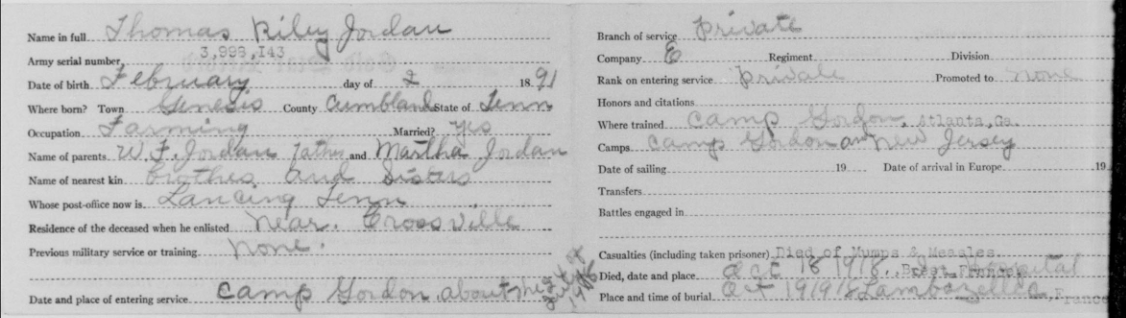 Name in full Thomas Riley Jordan
Army serial number 3,999,143
Date of birth February day of 2 1891
Where born? Town Genesis County Cumbland State of Tenn
Occupation Farming Married? yes
Name of parents W. F. Jordan father and Martha Jordan
Name of nearest kin brothes and Sisters
Whose post-office now is Lancing Tenn
Residence of the deceased when he enlisted near. Crossville
Previous military service or training none.
Date and place of entering service Camp Gordon. about the of
Branch of service Private
Company E Regiment Division
Rank on entering service private Promoted to none
Honors and citations
Where trained Camp Gordon, Atlanta, Ga.
Camps Camp Gordon an New Jersey
Date of sailing 19 Date of arrival in Europe 19
Transfers
Battles engaged in
Casualties (including taken prisoner) Died of Mumps & Measles
Died, date and place Oct 18 1918. Brest, France Hospital
Place and time of burial Oct 19 1918 France